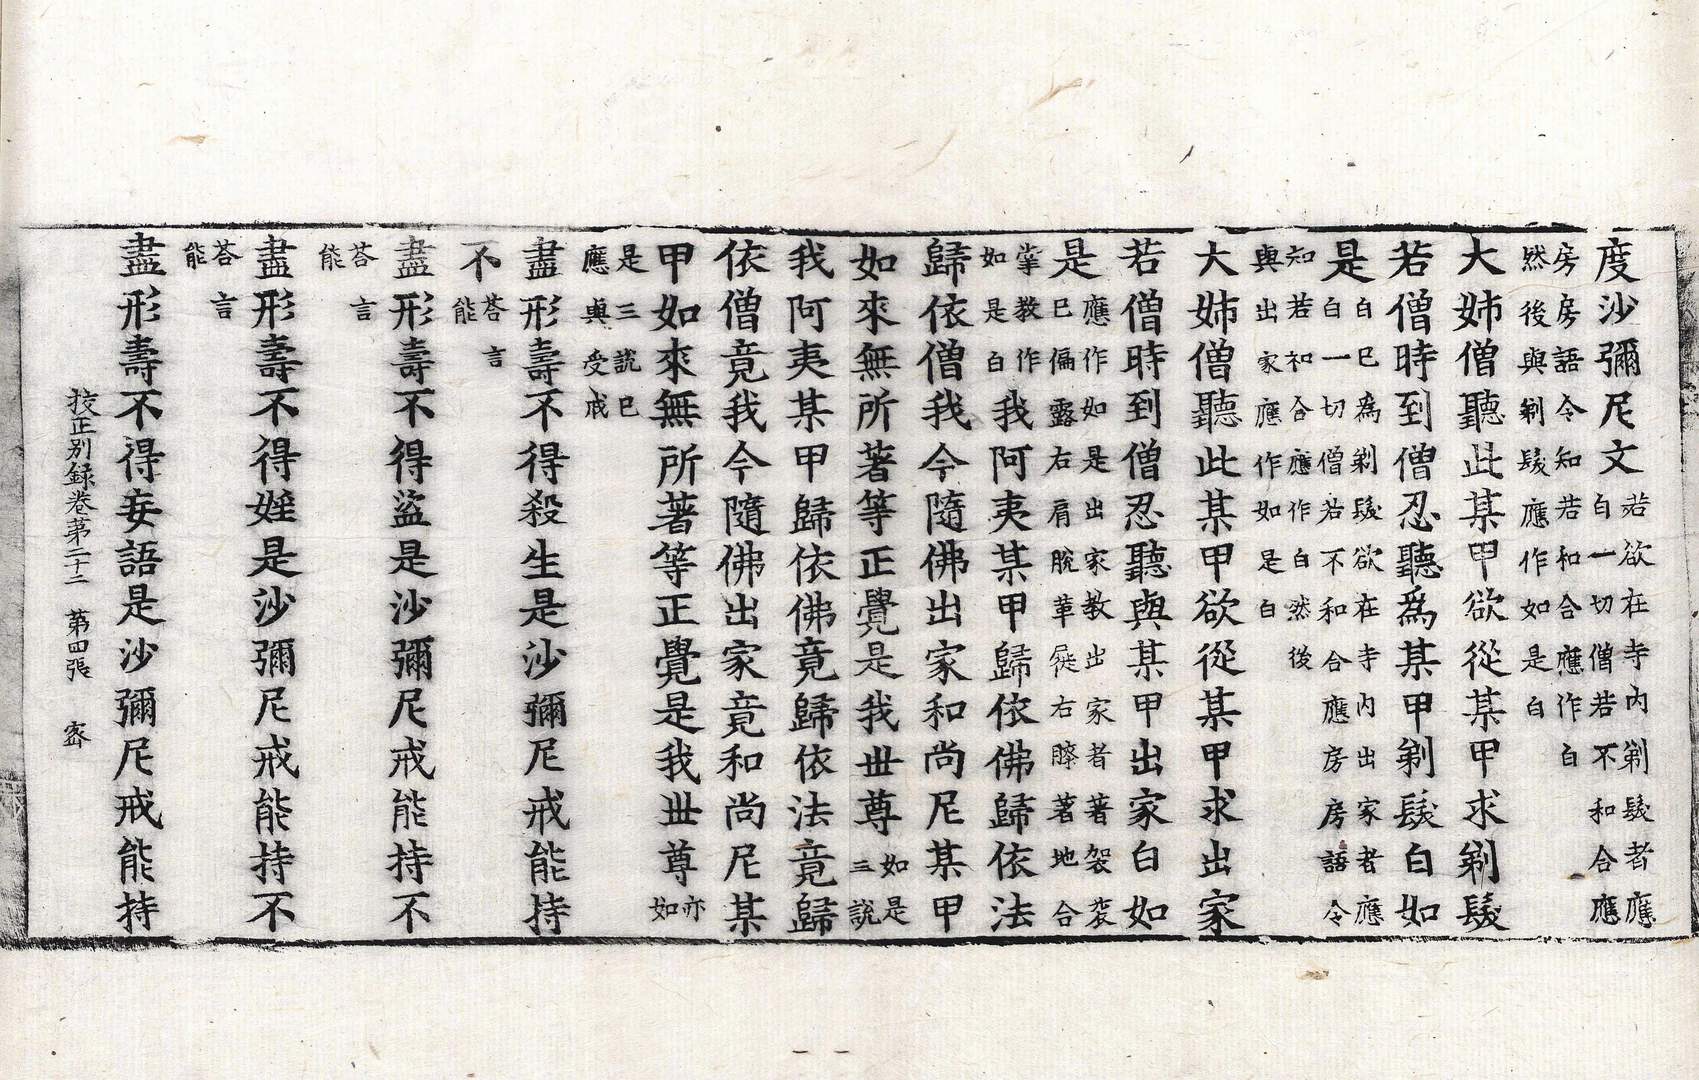 度沙彌尼文若欲在寺內剃髮者應白一切僧若不和合應
房房語令知若和合應作白然後與剃髮應作如是白
大姊僧聽此某甲欲從某甲求剃髮
若僧時到僧忍聽為某甲剃髮白如
是白已為剃髮欲在寺內出家者應白一切僧若不和合應房房語令
知若和合應作白然後與出家應作如是白
大姊僧聽此某甲欲從某甲求出家
若僧時到僧忍聽與某甲出家白如
是應作如是出家教出家者著袈裟已偏露右肩脫革屣右膝著地合
掌教作如是白我阿夷某甲歸依佛歸依法
歸依僧我今隨佛出家和尚尼某甲
如來無所著等正覺是我世尊如是三說
我阿夷某甲歸依佛竟歸依法竟歸
依僧竟我今隨佛出家竟和尚尼某
甲如來無所著等正覺是我世尊亦如
是三說已應與受戒
盡形壽不得殺生是沙彌尼戒能持
不荅言能
盡形壽不得盜是沙彌尼戒能持不
荅言能
盡形壽不得婬是沙彌尼戒能持不
荅言能
盡形壽不得妄語是沙彌尼戒能持
挍正別録卷苐二十二 苐四張 宻